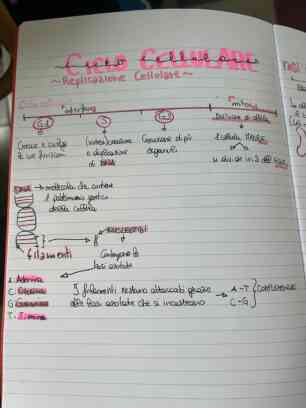 CICLO CELLULARE
~ Replicazione Cellulare ~
interfase
mitosi
G1
S
G2
Divisione di cellule
Cresce e svolge
le sue funzioni
e duplicazione
di DNA
Creazione di più
organuli
1 cellula MADRE
si divide in 2
DNA → molecola che contiene
il patrimonio genetico
della cellula
NUCLEOTIDI
filamenti
Contengono le
basi azotate
A. Adenina
C. Citosina
G. Guanina
T. Timina
I filamenti restano attaccati grazie
alle basi azotate che si incastrano
→ A-T
C-G